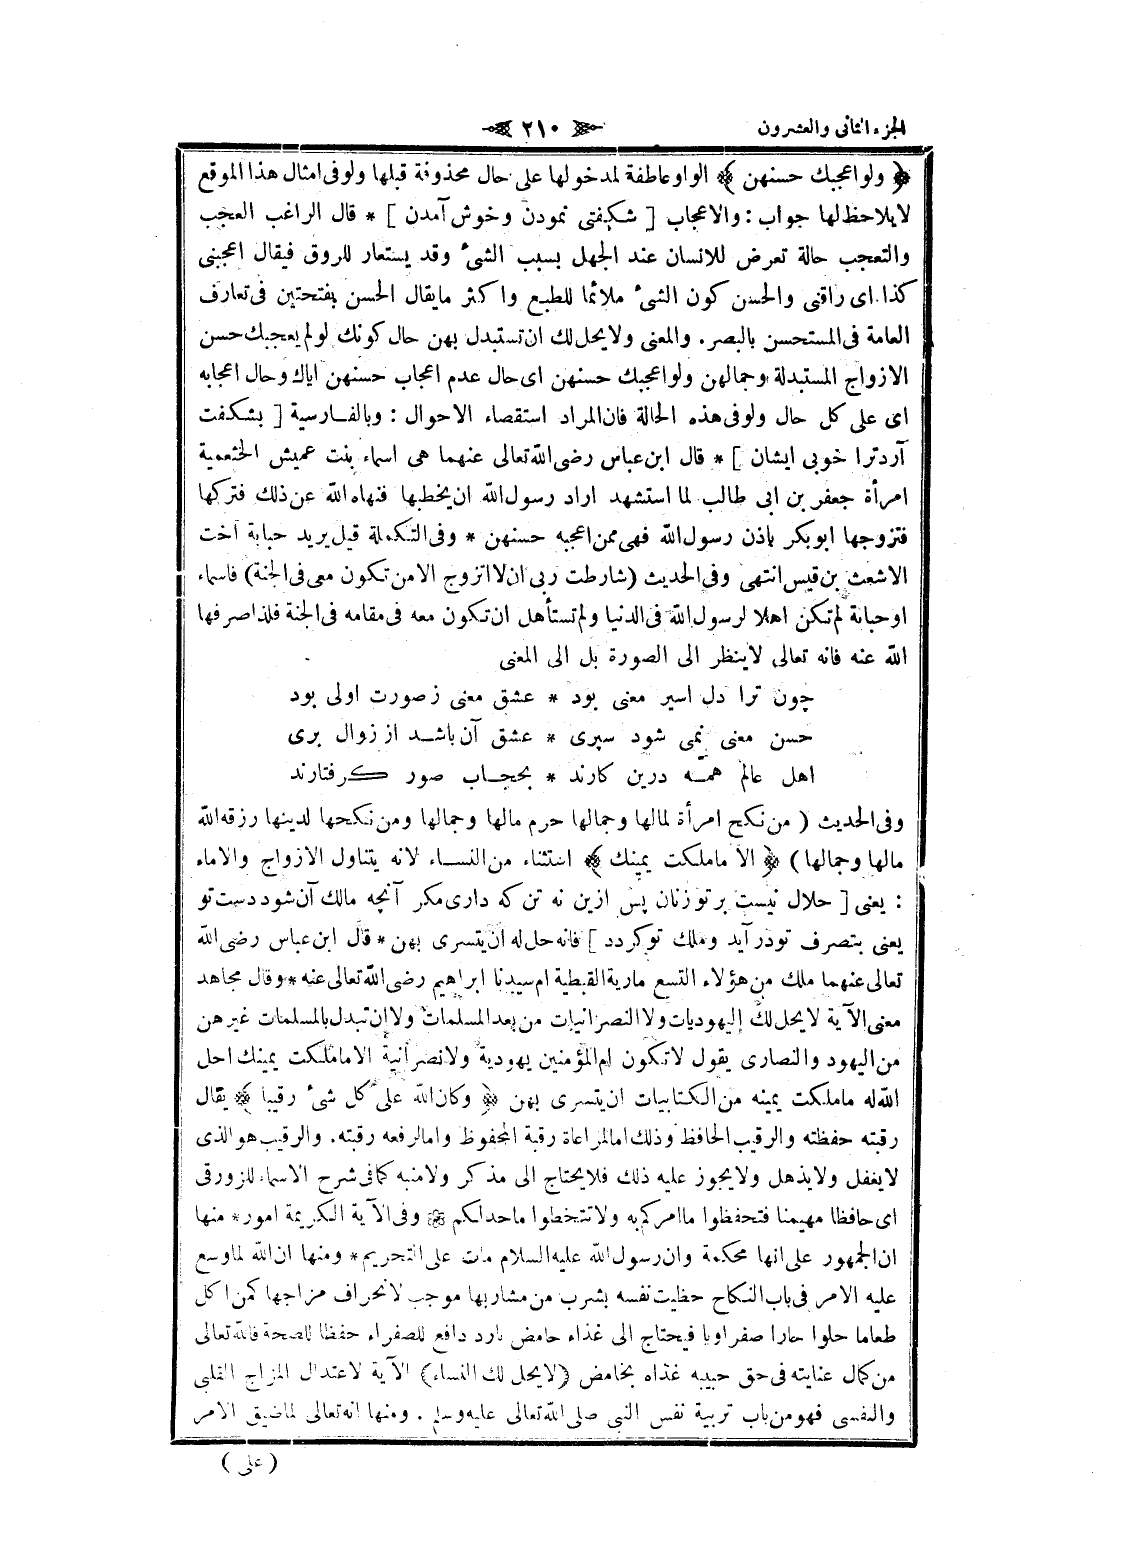 الجزء الثانى والعشرون
٢١٠
﴿ ولو اعجبك حسنهن ﴾ الواو عاطفة لمدخولها على حال محذوفة قبلها ولو فى امثال هذا الموقع
لا يلاحظ لها جواب : والاعجاب [ شكفتى نمودن وخوش آمدن ] * قال الراغب العجب
والتعجب حالة تعرض للانسان عند الجهل بسبب الشئ وقد يستعار للروق فيقال اعجبنى
كذا اى راقنى والحسن كون الشئ ملائما للطبع واكثر ما يقال الحسن بفتحتين فى تعارف
العامة فى المستحسن بالبصر. والمعنى ولا يحل لك ان تستبدل بهن حال كونك لو لم يعجبك حسن
الازواج المستبدلة وجمالهن ولو اعجبك حسنهن اى حال عدم اعجاب حسنهن اياك وحال اعجابه
اى على كل حال ولو فى هذه الحالة فان المراد استقصاء الاحوال : وبالفارسية [ بشكفت
آرد ترا خوبى ايشان ] * قال ابن عباس رضى الله تعالى عنهما هى اسماء بنت عميش الخثعمية
امرأة جعفر بن ابى طالب لما استشهد اراد رسول الله ان يخطبها فنهاه الله عن ذلك فتركها
فتزوجها ابو بكر باذن رسول الله فهى ممن اعجبه حسنهن * وفى التكملة قيل يريد حبابة اخت
الاشعث بن قيس انتهى وفى الحديث (شارطت ربى ان لا اتزوج الا من تكون معى فى الجنة) فاسماء
او حبانة لم تكن اهلا لرسول الله فى الدنيا ولم تستأهل ان تكون معه فى مقامه فى الجنة فلذا صرفها
الله عنه فانه تعالى لا ينظر الى الصورة بل الى المعنى
چون ترا دل اسير معنى بود * عشق معنى ز صورت اولى بود
حسن معنى نمى شود سپرى * عشق آن باشد از زوال برى
اهل عالم همه درين كارند * بحجاب صور كرفتارند
وفى الحديث ( من نكح امرأة لمالها وجمالها حرم مالها وجمالها ومن نكحها لدينها رزقه الله
مالها وجمالها ) ﴿ الا ما ملكت يمينك ﴾ استثناء من النساء لانه يتناول الازواج والاماء
: يعنى [ حلال نيست بر تو زنان پس ازين نه تن كه دارى مكر آنچه مالك آن شود دست تو
يعنى بتصرف تو در آيد وملك تو كردد ] فانه حل له ان يتسرى بهن * قال ابن عباس رضى الله
تعالى عنهما ملك من هؤلاء التسع مارية القبطية ام سيدنا ابراهيم رضى الله تعالى عنه * وقال مجاهد
معنى الآية لا يحل لك اليهوديات ولا النصرانيات من بعد المسلمات ولا ان تبدل بالمسلمات غيرهن
من اليهود والنصارى يقول لا تكون ام المؤمنين يهودية ولا نصرانية الا ما ملكت يمينك احل
الله له ما ملكت يمينه من الكتابيات ان يتسرى بهن ﴿ وكان الله على كل شئ رقيبا ﴾ يقال
رقبته حفظته والرقيب الحافظ وذلك اما لمراعاة رقبة المحفوظ واما لرفعه رقبته. والرقيب هو الذى
لا يغفل ولا يذهل ولا يجوز عليه ذلك فلا يحتاج الى مذكر ولا منبه كما فى شرح الاسماء للزورقى
اى حافظا مهيمنا فتحفظوا ما امركم به ولا تتخطوا ما حد لكم * وفى الآية الكريمة امور * منها
ان الجمهور على انها محكمة وان رسول الله عليه السلام مات على التحريم * ومنها ان الله لما وسع
عليه الامر فى باب النكاح حظيت نفسه بشرب من مشاربها موجب لانحراف مزاجها كمن اكل
طعاما حلوا حارا صفراويا فيحتاج الى غذاء حامض بارد دافع للصفراء حفظا للصحة فالله تعالى
من كمال عنايته فى حق حبيبه غذاه بحامض (لا يحل لك النساء) الآية لاعتدال المزاج القلبى
والنفسى فهو من باب تربية نفس النبى صلى الله تعالى عليه وسلم . ومنها انه تعالى لما ضيق الامر
( على )